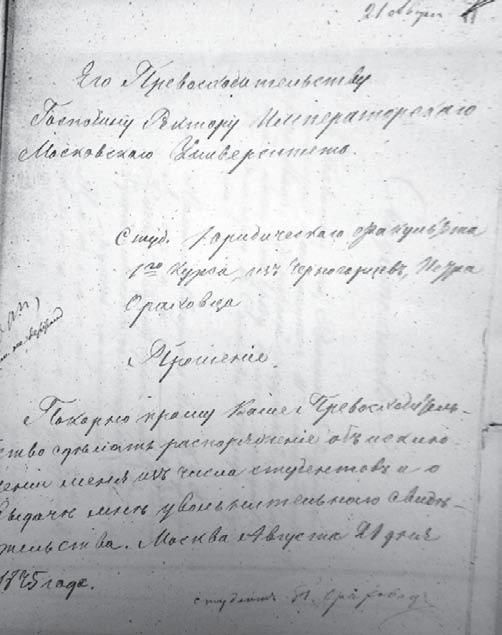 21 Авгу
Его Превосходительству
Господину Ректору Императорскаго
Московскаго Университета.
Студ. Юридическаго факультета
1го курса, изъ Черногорцевъ, Петра
Ораховца
Прошеніе.
Покорно прошу Ваше Превосходитель-
ство сдѣлать распоряженіе объ исклю-
ченіи меня изъ числа студентовъ и о
выдачѣ мнѣ увольнительнаго свидѣ-
тельства. Москва Августа 21 дня
года.
студентъ П. Ораховецъ